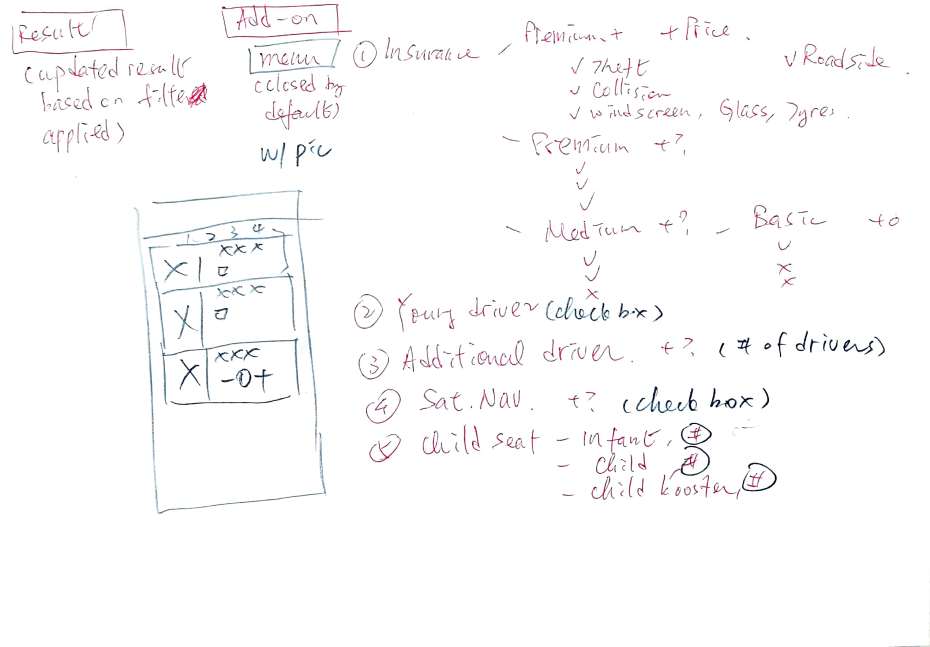 Result
(updated result
based on filter
applied)
Add-on
menu
(closed by
default)
w/ pic
① Insurance
Premium + + Price.
✓ Theft
✓ Collision
✓ windscreen, Glass, Tyres.
✓ Roadside.
- Premium +?
✓
✓
✓
- Medium +?
✓
✓
x
- Basic +0
✓
x
x
② Young driver (check box)
③ Additional driver. +? (# of drivers)
④ Sat. Nav. +? (check box)
⑤ Child seat - infant, #
- child #
- child booster, #
1 2 3 4
X xxx
X xxx
X xxx
-0+